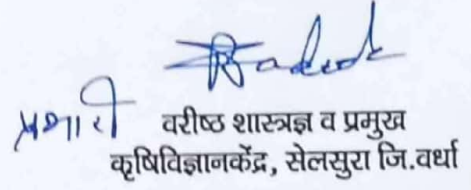 प्रभारी वरीष्ठ शास्त्रज्ञ व प्रमुख
कृषिविज्ञानकेंद्र, सेलसुरा जि.वर्धा